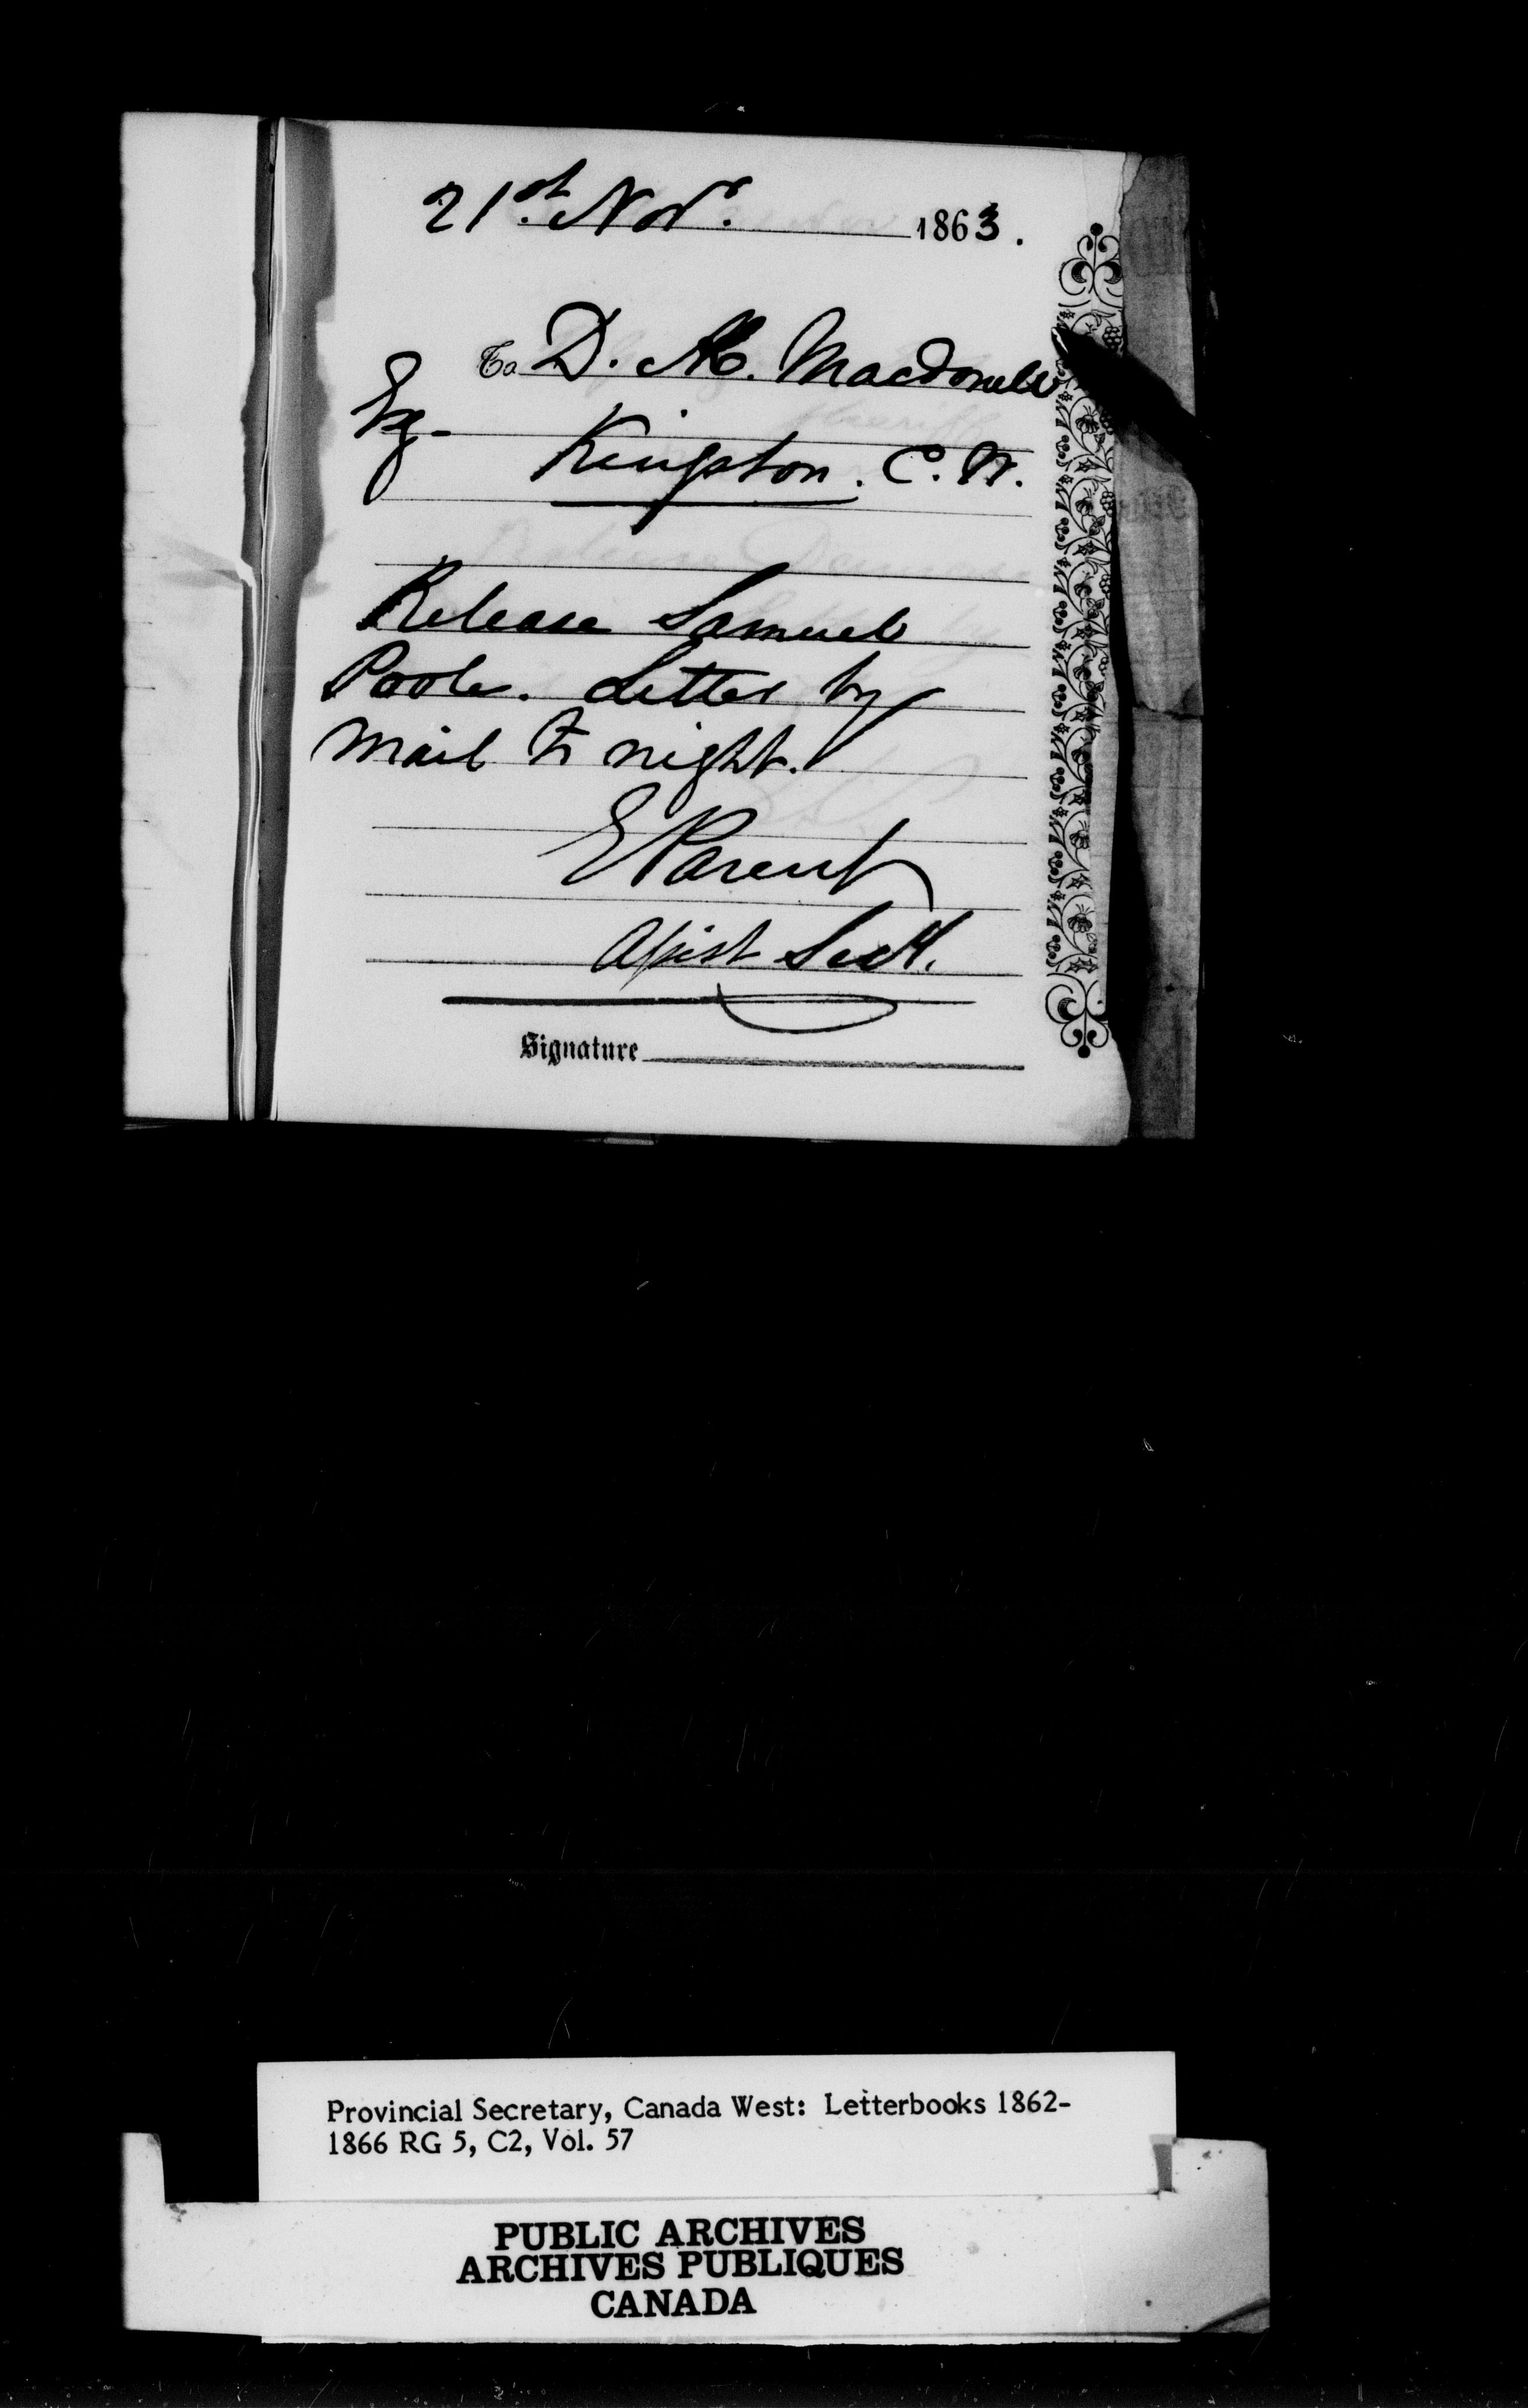 21st. Novr. 1863.
To D. Æ. Macdonell
Esq-
Kingston. C. W.
Release Samuel
Poole. Letter by
mail to night.
E Parent
Assist Secy.
Signature
Provincial Secretary, Canada West: Letterbooks 1862-
1866 RG 5, C2, Vol. 57
PUBLIC ARCHIVES
ARCHIVES PUBLIQUES
CANADA